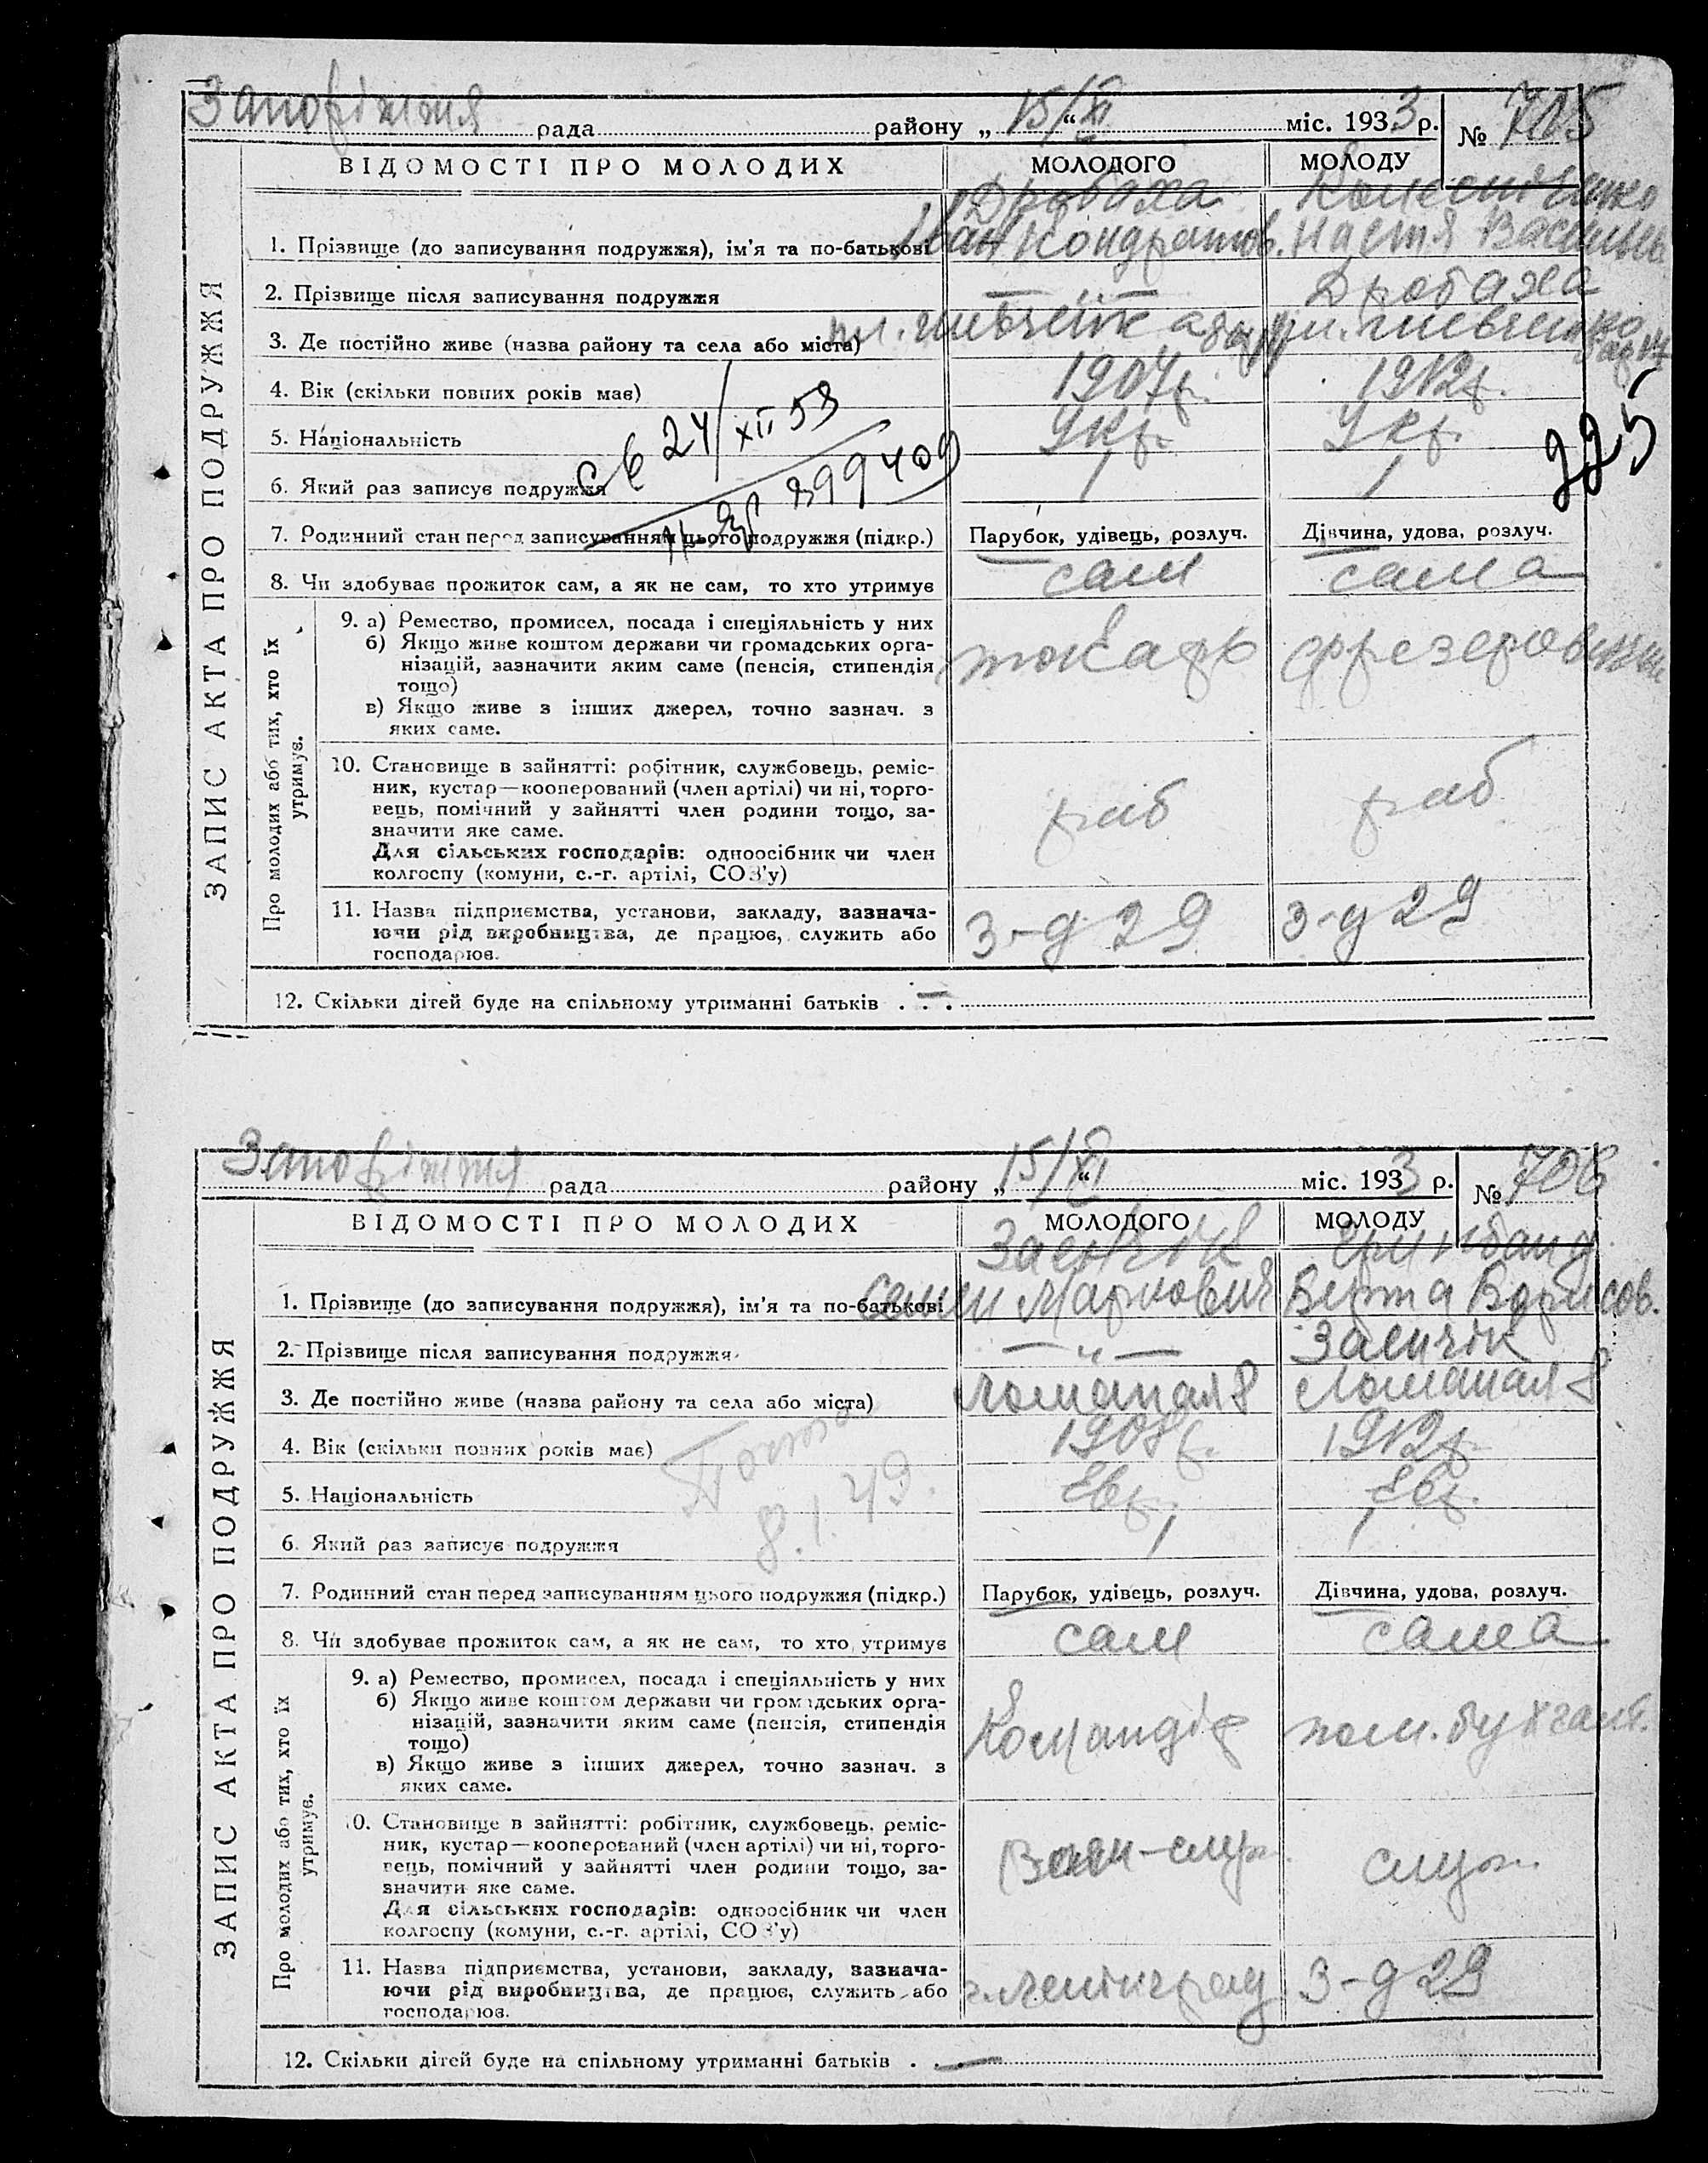 Запоріжжя рада району „ 15/XI “ міс. 1933 р. № 705
ВІДОМОСТІ ПРО МОЛОДИХ МОЛОДОГО МОЛОДУ
Дробаха
1. Прізвище (до записування подружжя), ім'я та по-батькові Іван Кондратов. Настя
2. Прізвище після записування подружжя — „ — Дробаха
3. Де постійно живе (назва району та села або міста)
4. Вік (скільки повних років має) 1907р. 1912р.
5. Національність Укр. Укр.
6. Який раз записує подружжя 1 1
7. Родинний стан перед записуванням цього подружжя (підкр.) Парубок, удівець, розлуч. Дівчина, удова, розлуч.
8. Чи здобуває прожиток сам, а як не сам, то хто утримує сам сама
9. а) Ремество, промисел, посада і спеціяльність у них
б) Якщо живе коштом держави чи громадських орга-
нізацій, зазначити яким саме (пенсія, стипендія
тощо)
в) Якщо живе з інших джерел, точно зазнач. з
яких саме.
токарь
10. Становище в зайнятті: робітник, службовець, реміс-
ник, кустар—кооперований (член артілі) чи ні, торго-
вець, помічний у зайнятті член родини тощо, за-
значити яке саме.
Для сільських господарів: одноосібник чи член
колгоспу (комуни, с.-г. артілі, СОЗ'у)
раб раб
11. Назва підприємства, установи, закладу, зазнача-
ючи рід виробництва, де працює, служить або
господарює.
з-д 29 з-д 29
12. Скільки дітей буде на спільному утриманні батьків . — .
ЗАПИС АКТА ПРО ПОДРУЖЖЯ
Про молодих або тих, хто їх
утримує.
св 24/XII 53
899409
225
Запоріжжя рада району „ 15/XI “ міс. 1933 р. № 706
ВІДОМОСТІ ПРО МОЛОДИХ МОЛОДОГО МОЛОДУ
1. Прізвище (до записування подружжя), ім'я та по-батькові Семен Маркович Берта Борисов.
2. Прізвище після записування подружжя — „ — Заенчік
3. Де постійно живе (назва району та села або міста)
4. Вік (скільки повних років має) 1908р. 1912р.
5. Національність Евр. Евр.
6. Який раз записує подружжя 1 1
7. Родинний стан перед записуванням цього подружжя (підкр.) Парубок, удівець, розлуч. Дівчина, удова, розлуч.
8. Чи здобуває прожиток сам, а як не сам, то хто утримує сам сама
9. а) Ремество, промисел, посада і спеціяльність у них
б) Якщо живе коштом держави чи громадських орга-
нізацій, зазначити яким саме (пенсія, стипендія
тощо)
в) Якщо живе з інших джерел, точно зазнач. з
яких саме.
Командір пом. бухгалт.
10. Становище в зайнятті: робітник, службовець, реміс-
ник, кустар—кооперований (член артілі) чи ні, торго-
вець, помічний у зайнятті член родини тощо, за-
значити яке саме.
Для сільських господарів: одноосібник чи член
колгоспу (комуни, с.-г. артілі, СОЗ'у)
служ.
11. Назва підприємства, установи, закладу, зазнача-
ючи рід виробництва, де працює, служить або
господарює.
г. Ленінград з-д 29
12. Скільки дітей буде на спільному утриманні батьків . . —
ЗАПИС АКТА ПРО ПОДРУЖЖЯ
Про молодих або тих, хто їх
утримує.
8.1.49.